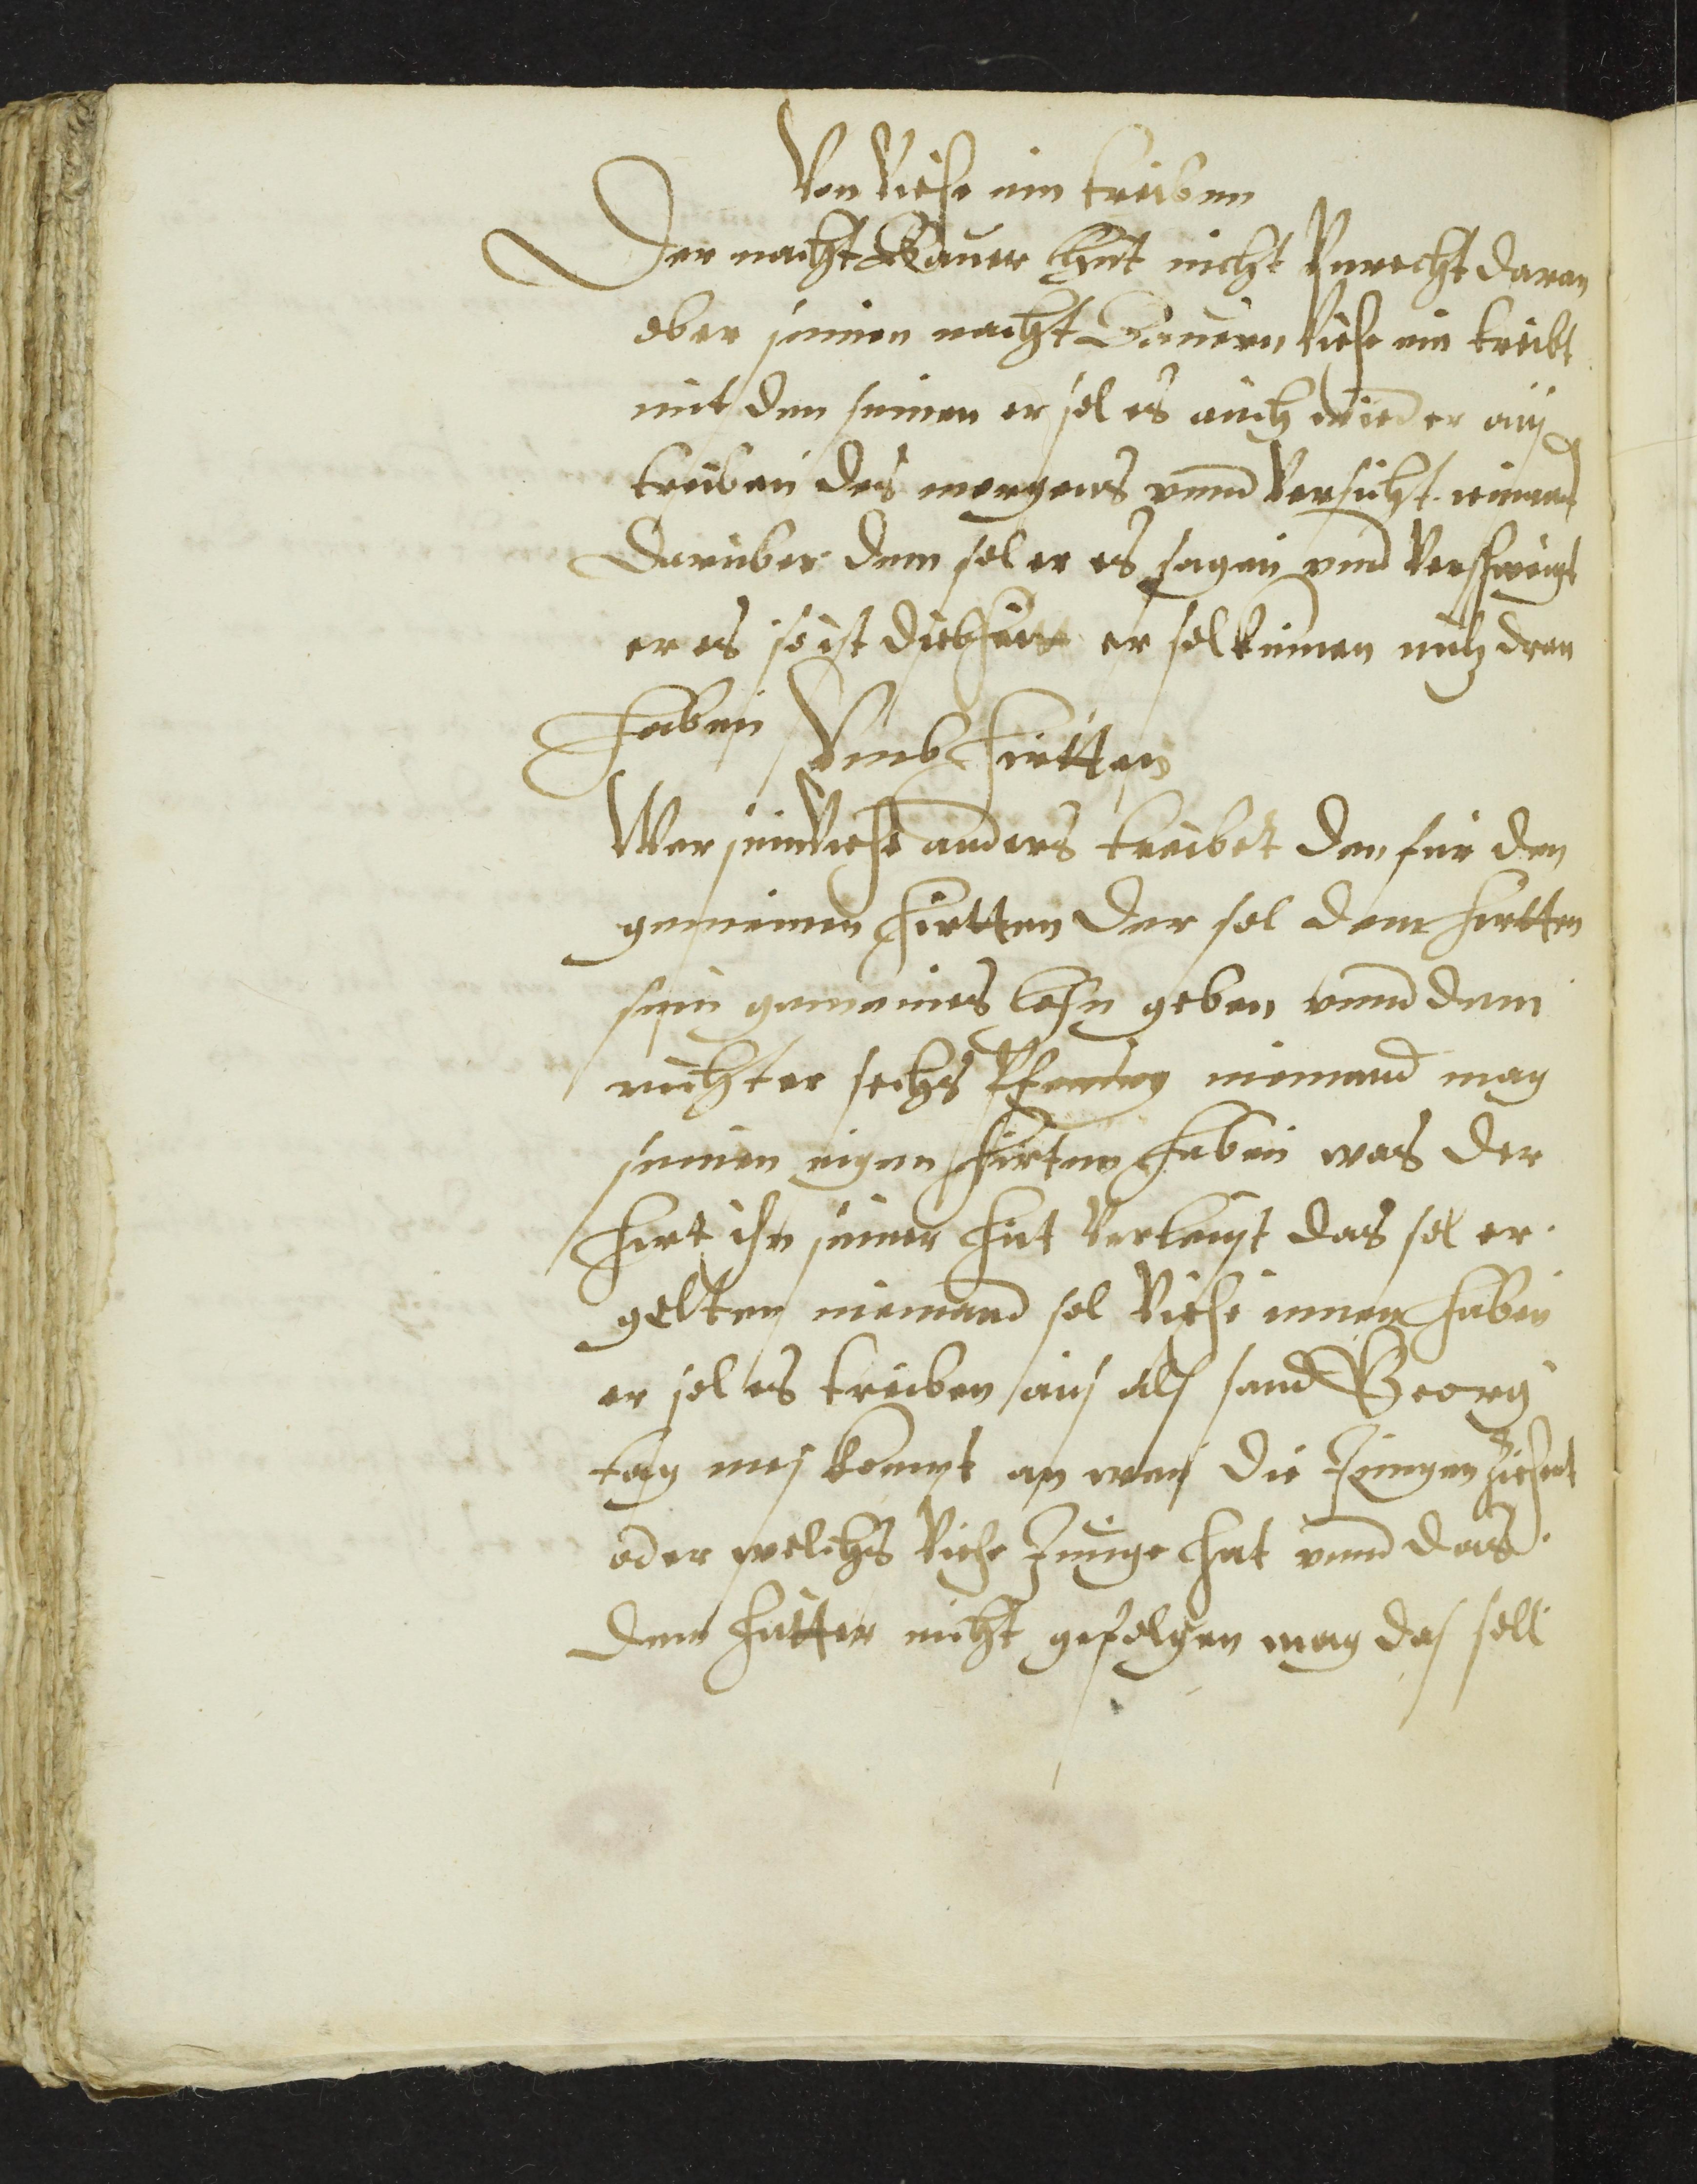 Von Viehe ein treiben
Der nacht Bauer thut nicht Vnrecht daran
ober seinen nacht Bauern Viehe ein treibt
mit den seinen er sol es auch wieder aus
treiben des morgens vnnd Versicht iemand
daruber dem sol er es sagen vnnd Verschweigt
er es so ist diebheit er sol keinen nutz dran
haben
Vmb hirtten
Wer sein Viehe anders treibet dan fur den
gemeinen hirtten der sol dem hirtten
sein gemeines lohn geben vnnd dem
richter sechs Pfennig niemand mag
seinen eigen hirten haben was der
hirt ihn seiner hut Verleust das sol er
gelten niemand sol Viehe innen haben
er sol es treiben aus als sand Georg
tag nus kompt an was die Jungen zihent
oder welchs Viehe Junge hat vnnd das
dem hutter nicht gefolgen mag das soll